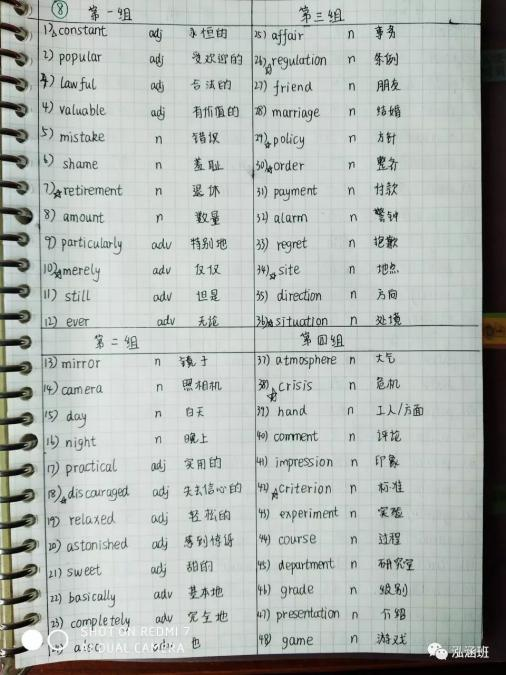 ⑧ 第一组
1)☆constant adj 永恒的
2) popular adj 受欢迎的
3) lawful adj 合法的
4) valuable adj 有价值的
5) mistake n 错误
6) shame n 羞耻
7)☆retirement n 退休
8) amount n 数量
9) particularly adv 特别地
10)☆merely adv 仅仅
11) still adv 但是
12) ever adv 无论
第二组
13) mirror n 镜子
14) camera n 照相机
15) day n 白天
16) night n 晚上
17) practical adj 实用的
18)☆discouraged adj 失去信心的
19) relaxed adj 轻松的
20) astonished adj 感到惊讶
21) sweet adj 甜的
22) basically adv 基本地
23) completely adv 完全地
24) also adv 也
第三组
25) affair n 事务
26)☆regulation n 条例
27) friend n 朋友
28) marriage n 结婚
29)☆policy n 方针
30)☆order n 整齐
31) payment n 付款
32) alarm n 警钟
33) regret n 抱歉
34)☆site n 地点
35) direction n 方向
36)☆situation n 处境
第四组
37) atmosphere n 大气
38)☆crisis n 危机
39) hand n 工人/方面
40) comment n 评论
41) impression n 印象
42)☆criterion n 标准
43) experiment n 实验
44) course n 过程
45) department n 研究室
46) grade n 级别
47) presentation n 介绍
48) game n 游戏
SHOT ON REDMI 7
AI DUAL CAMERA
泓涵班